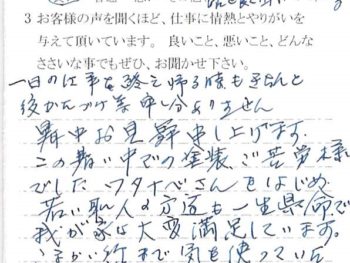 3 お客様の声を聞くほど、仕事に情熱とやりがいを
与えて頂いています。良いこと、悪いこと、どんな
ささいな事でもぜひ、お聞かせ下さい。
一日の仕事を終え帰る時もきちんと
後かたづけ等申し分ありません
暑中お見舞申し上げます。
この暑い中での塗装、ご苦労様
でした ワタナベさんをはじめ
若い職人の方達も一生県命で
我が家は大変満足しています。
こまかい所まで気を使っていた